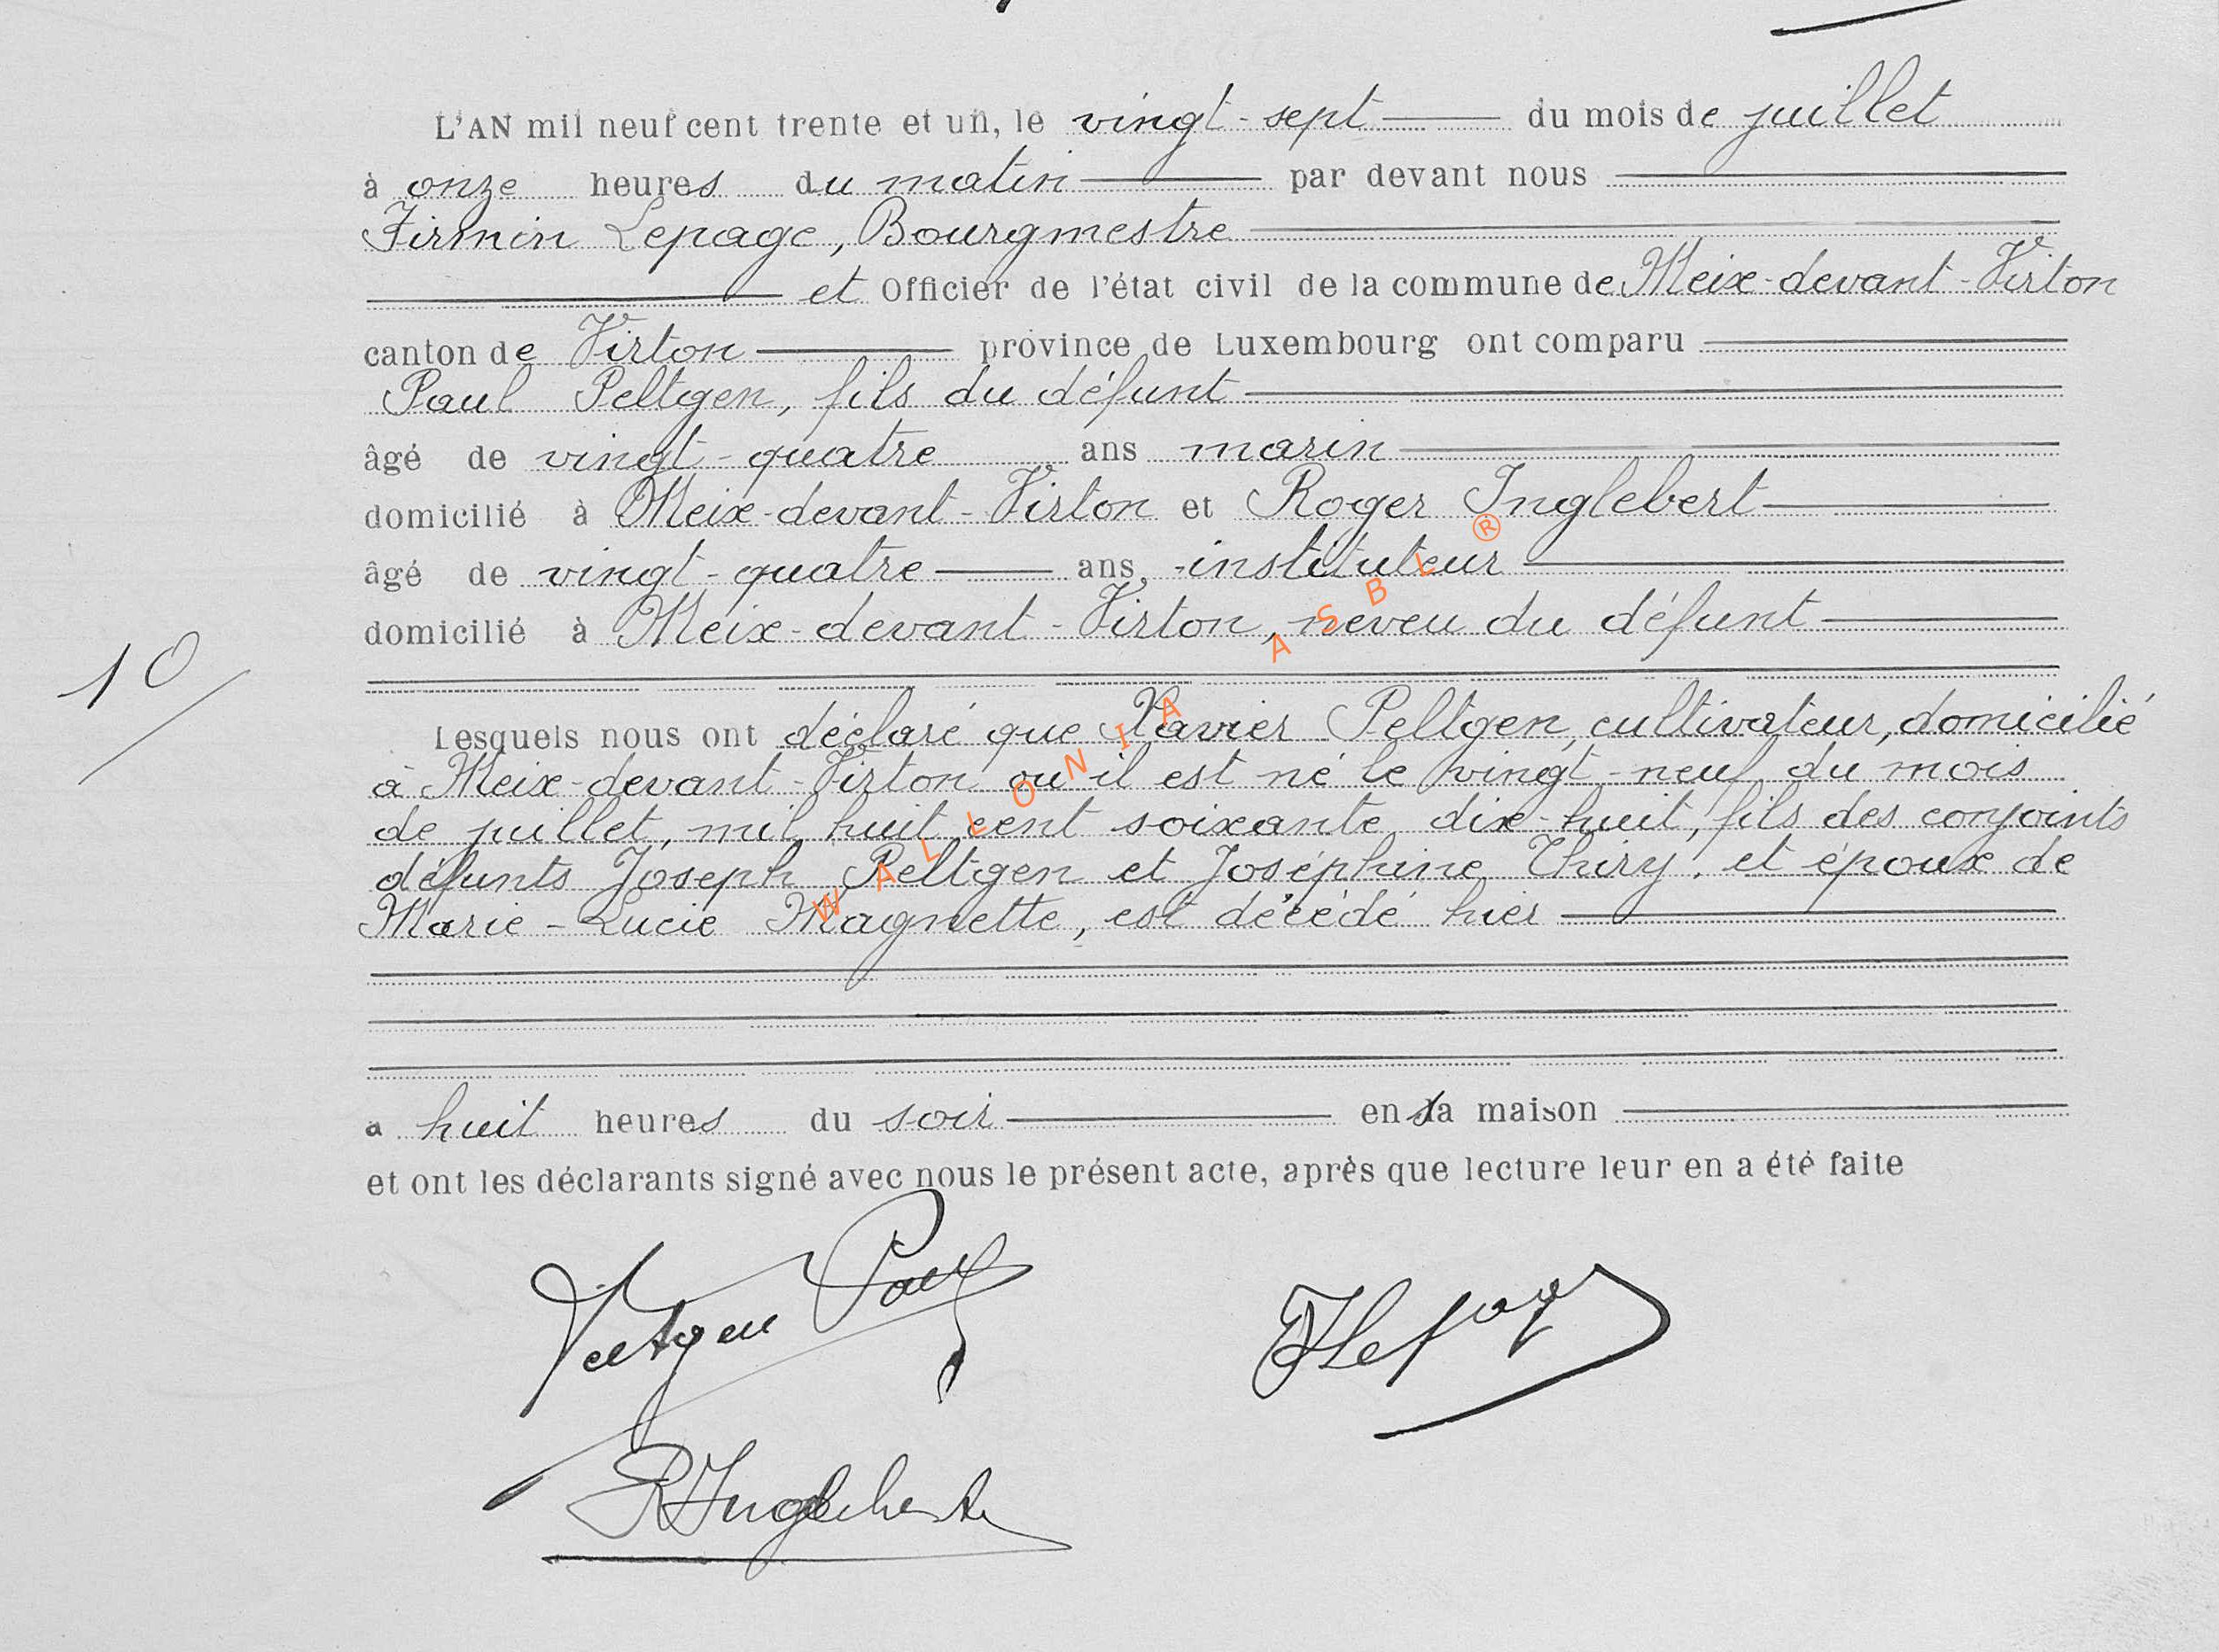 L'AN mil neuf cent trente et un, le vingt-sept du mois de juillet
à onze heures du matin par devant nous
Firmin Lepage, Bourgmestre
et Officier de l'état civil de la commune de Meix-devant-Virton
canton de Virton province de Luxembourg ont comparu
Paul Peltgen, fils du défunt
âgé de vingt-quatre ans marin
domicilié à Meix-devant-Virton et Roger Inglebert
âgé de vingt-quatre ans, instituteur
domicilié à Meix-devant-Virton, neveu du défunt
10
Lesquels nous ont déclaré que Xavier Peltgen, cultivateur, domicilié
à Meix-devant-Virton où il est né le vingt-neuf du mois
de juillet, mil huit cent soixante dix-huit, fils des conjoints
défunts Joseph Peltgen et Joséphine Thiry. et époux de
Marie-Lucie Magnette, est décédé hier
a huit heures du soir en sa maison
et ont les déclarants signé avec nous le présent acte, après que lecture leur en a été faite
Peltgen Paul
F Lepage
R Inglebert
WALLONIA ASBL ®